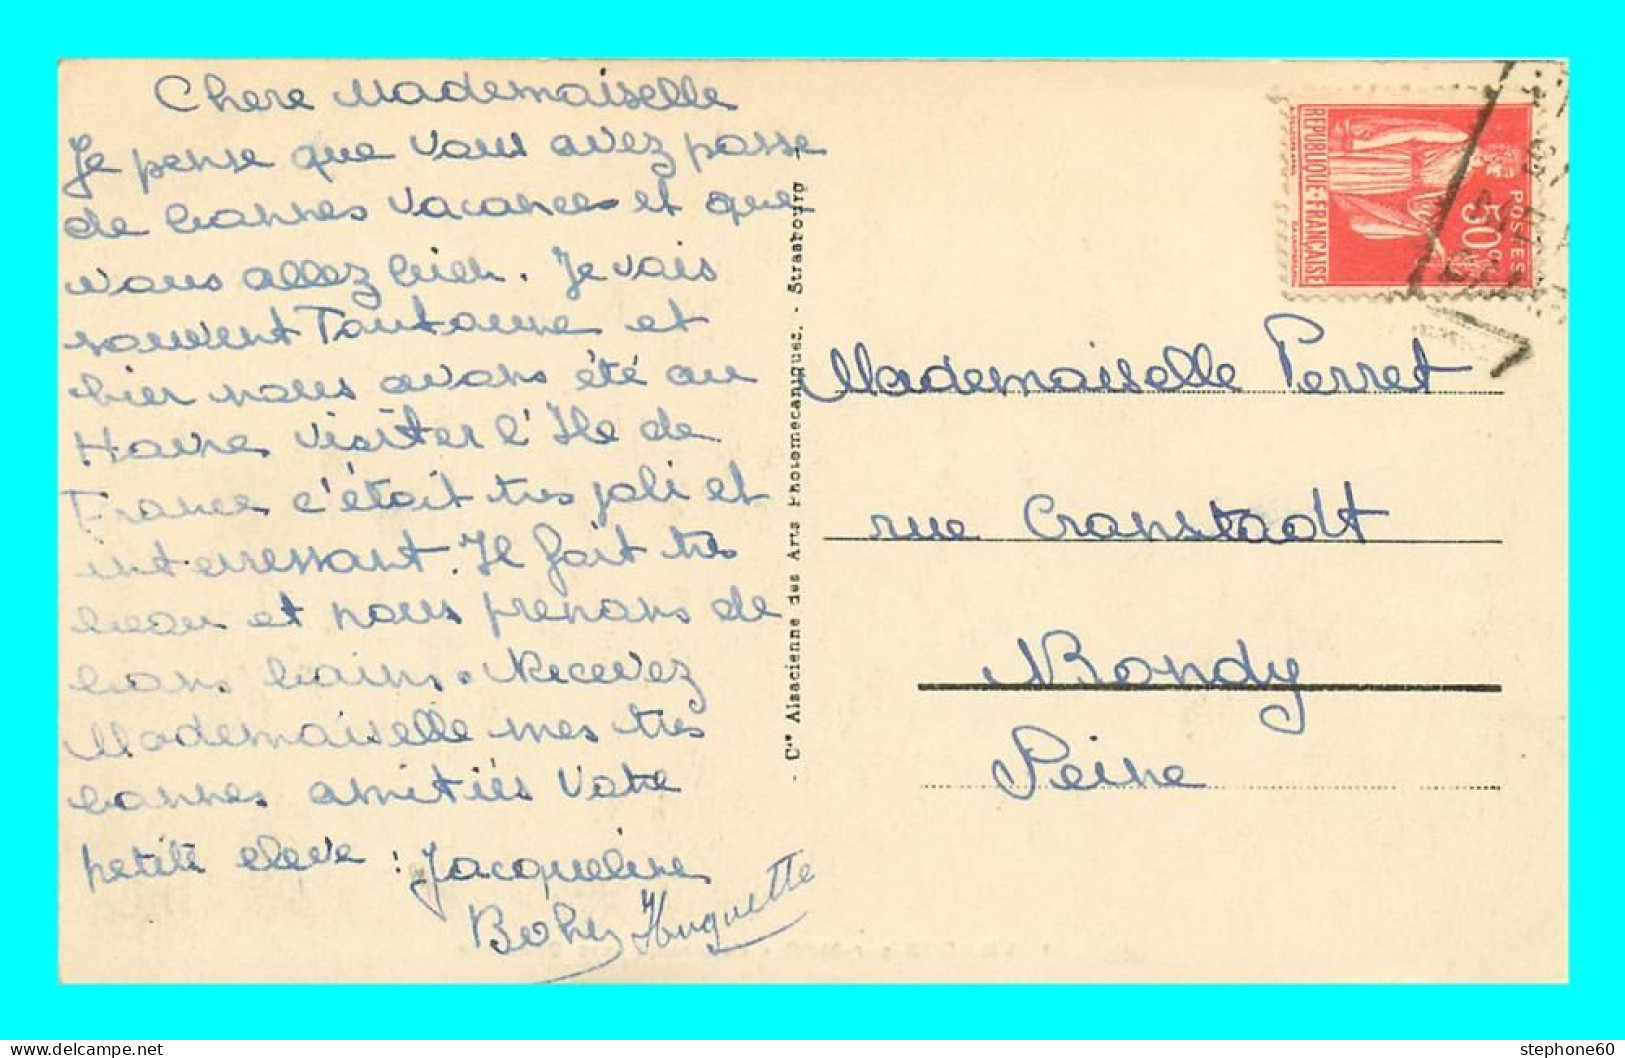 Chere Mademoiselle
Je pense que vous avez passe
de bonnes vacances et que
vous allez bien. Je vais
souvent Tantanne et
hier nous avons été au
Havre visiter l'Ile de
France c'était tres joli et
interressant. Il fait tres
beau et nous prenons de
bons bains. Recevez
Mademoiselle mes tres
bonnes amitiés Votre
petite eleve : Jacqueline
Bohez Huguette
- Cie Alsacienne des Arts Photomécaniques. - Strasbourg -
REPUBLIQUE-FRANÇAISE
50c
POSTES
Mademoiselle Perret
rue Cronstadt
Bondy
Seine
stephone60